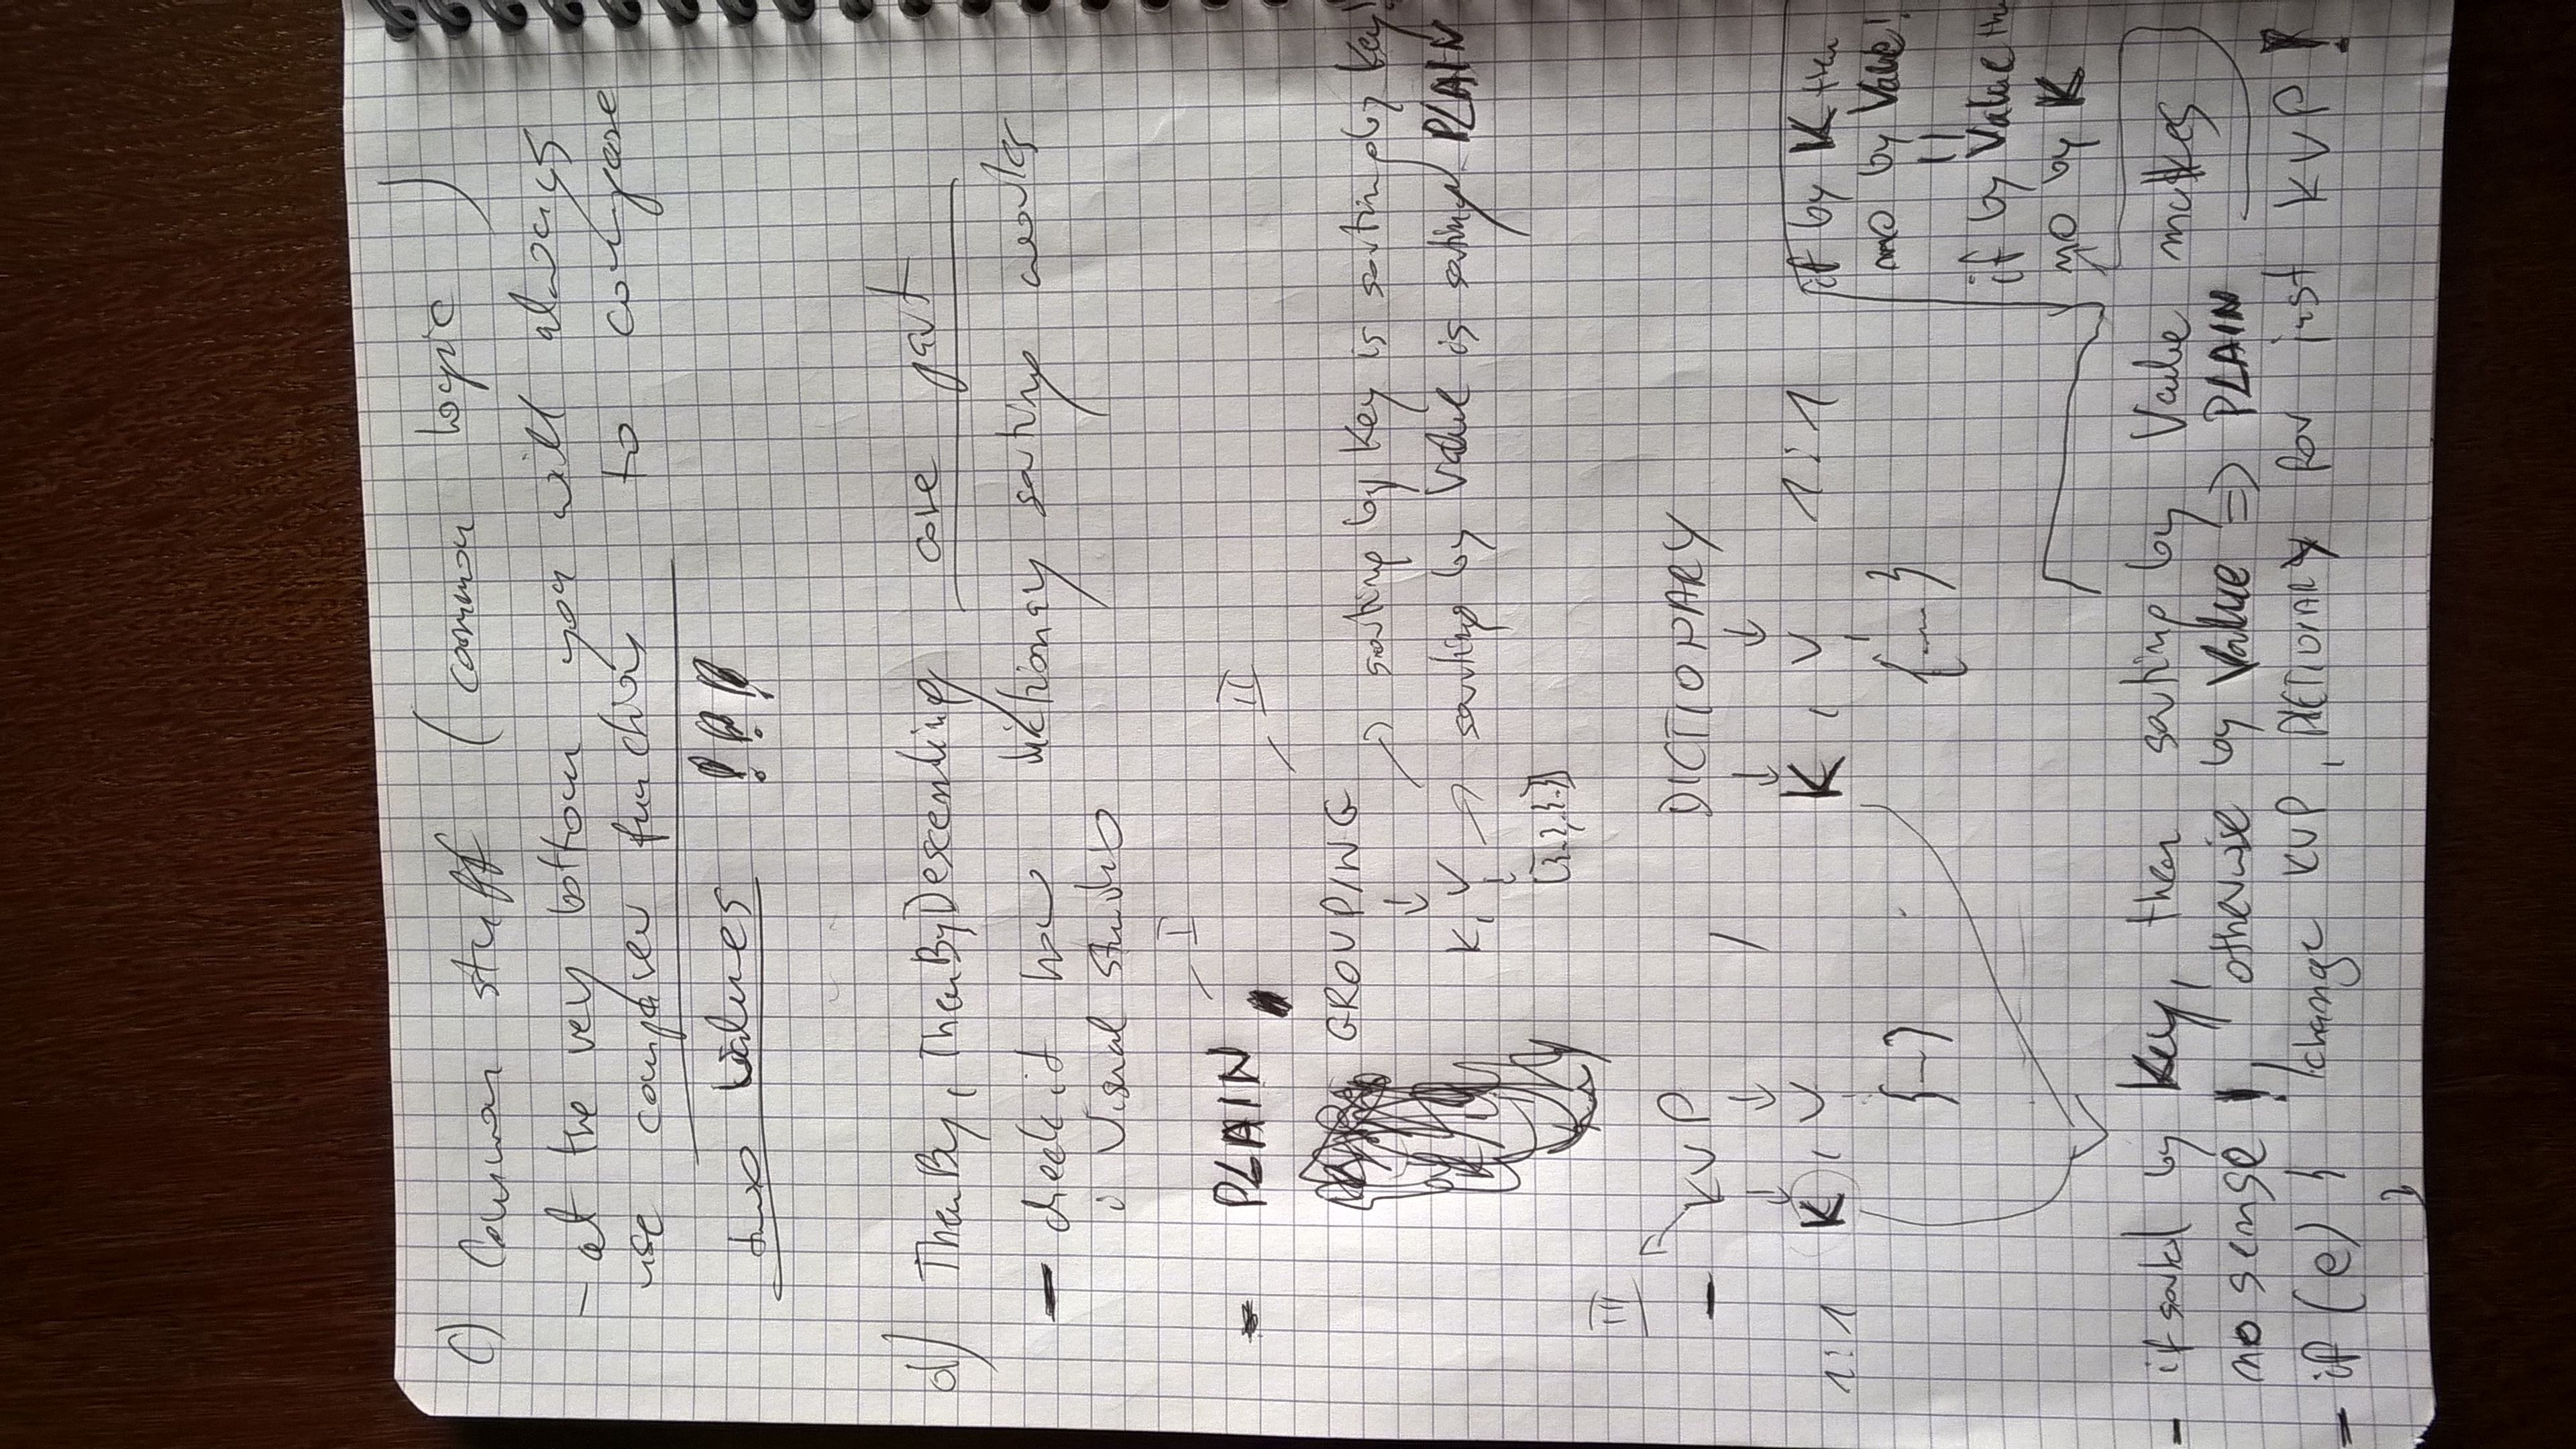 c) Common stuff (common logic)
- at the very bottom you will always
use comparer function to compare
two values !!!
d) ThenBy, ThenByDescending core part
- check it how dictionary sorting works
i Visual Studio
I
- PLAIN
II
GROUPING
→ sorting by Key is sorting by Key!
K, V → sorting by Value is sorting PLAIN
[{..}, {..}]
III
- KVP , DICTIONARY
1:1 K, V K, V 1:1
{...} {...}
if by K then
no by Value!
||
if by Value the
no by K
- if sorted by Key, then sorting by Value makes
no sense!, otherwise by Value => PLAIN
- if (e) { /change KVP, DICTIONARY for just KVP!
}